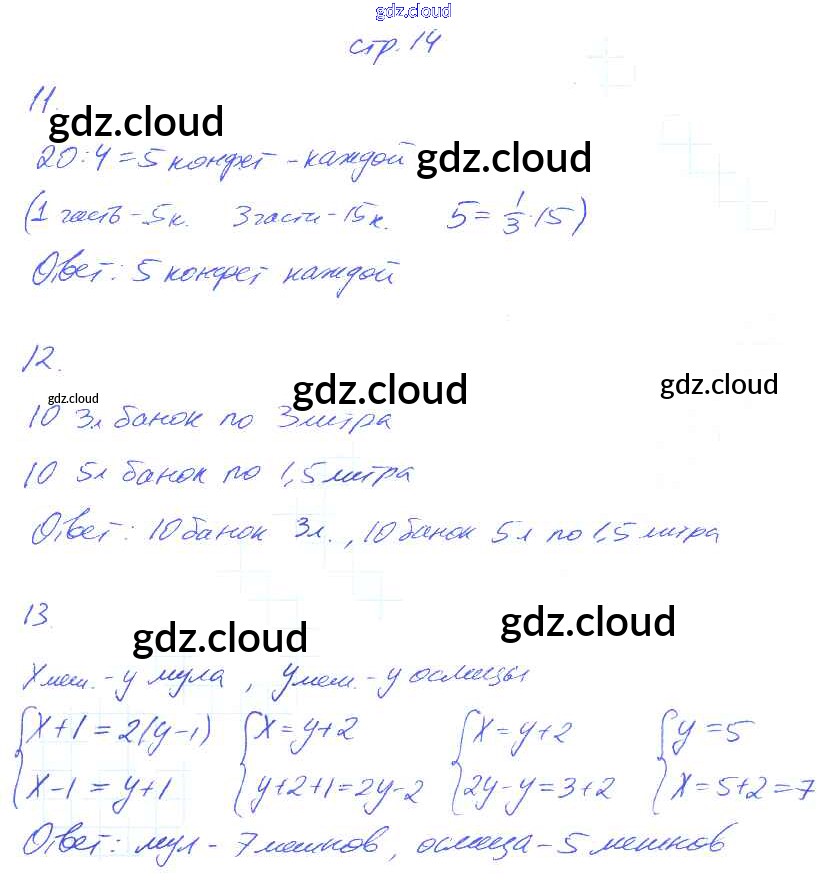 gdz.cloud
стр. 14
11.
gdz.cloud
20:4=5 конфет - каждой gdz.cloud
(1 часть - 5к. 3 части - 15к. 5 = 1/3 · 15)
Ответ: 5 конфет каждой
12.
gdz.cloud gdz.cloud gdz.cloud
10 3л банок по 3 литра
10 5л банок по 1,5 литра
Ответ: 10 банок 3л., 10 банок 5л по 1,5 литра
13.
gdz.cloud gdz.cloud
X меш. - у мула, Y меш. - у ослицы
{x+1=2(y-1) {x=y+2 {x=y+2 {y=5
{x-1=y+1 {y+2+1=2y-2 {2y-y=3+2 {x=5+2=7
Ответ: мул - 7 мешков, ослица - 5 мешков